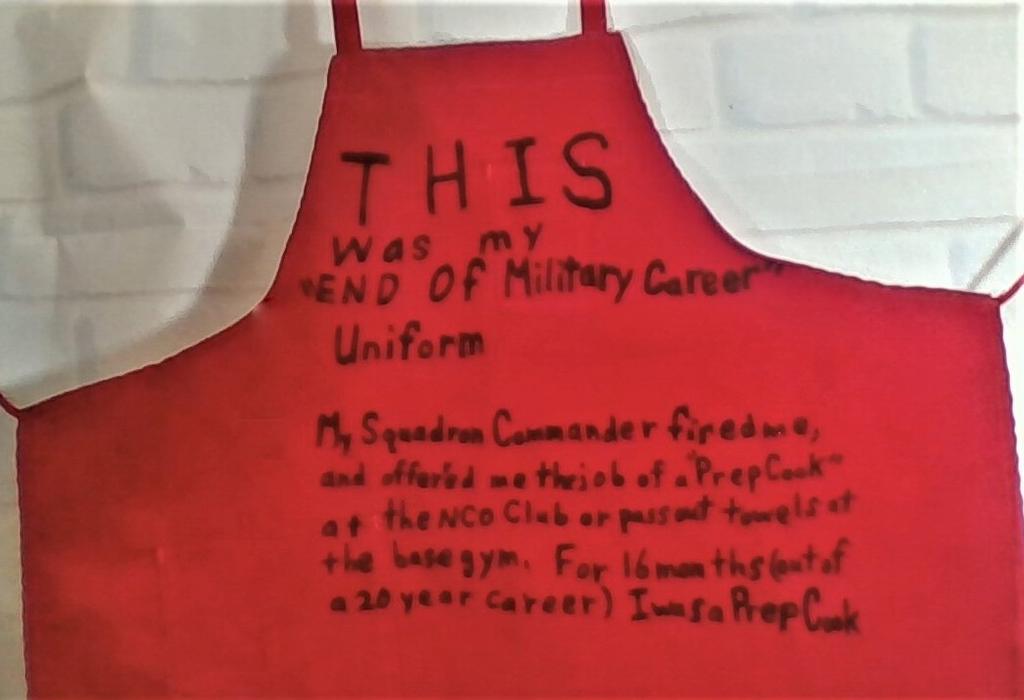 THIS
was my
"END Of Military Career"
Uniform
My Squadron Commander fired me,
and offered me the job of a "Prep Cook"
at the NCO Club or pass out towels at
the base gym. For 16 months (out of
a 20 year career) I was a Prep Cook